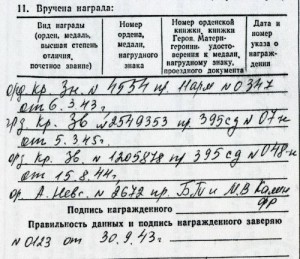 11. Вручена награда:
Вид награды (орден, медаль, высшая степень отличия, почетное звание)
Номер ордена, медали, нагрудного знака
Номер орденской книжки, книжки Героя. Матери-героини, удостоверения к медали, нагрудному знаку, проездного документа
Дата и номер указа о награждении
Кр. Зн. № 4554 пр. Нарк № 0347
от 6.3.43 г.
Кр. Зв. № 2549353 пр. 395 сд № 07-н
от 5.3.45 г.
Кр. Зв. № 1205878 пр. 395 сд № 048-н
от 15.8.44 г.
ор. А. Невс. № 2672 пр. БТ и МВ Калин
Подпись награжденного
фр
Правильность данных и подпись награжденного заверяю
№ 0123 от 30.9.43 г.